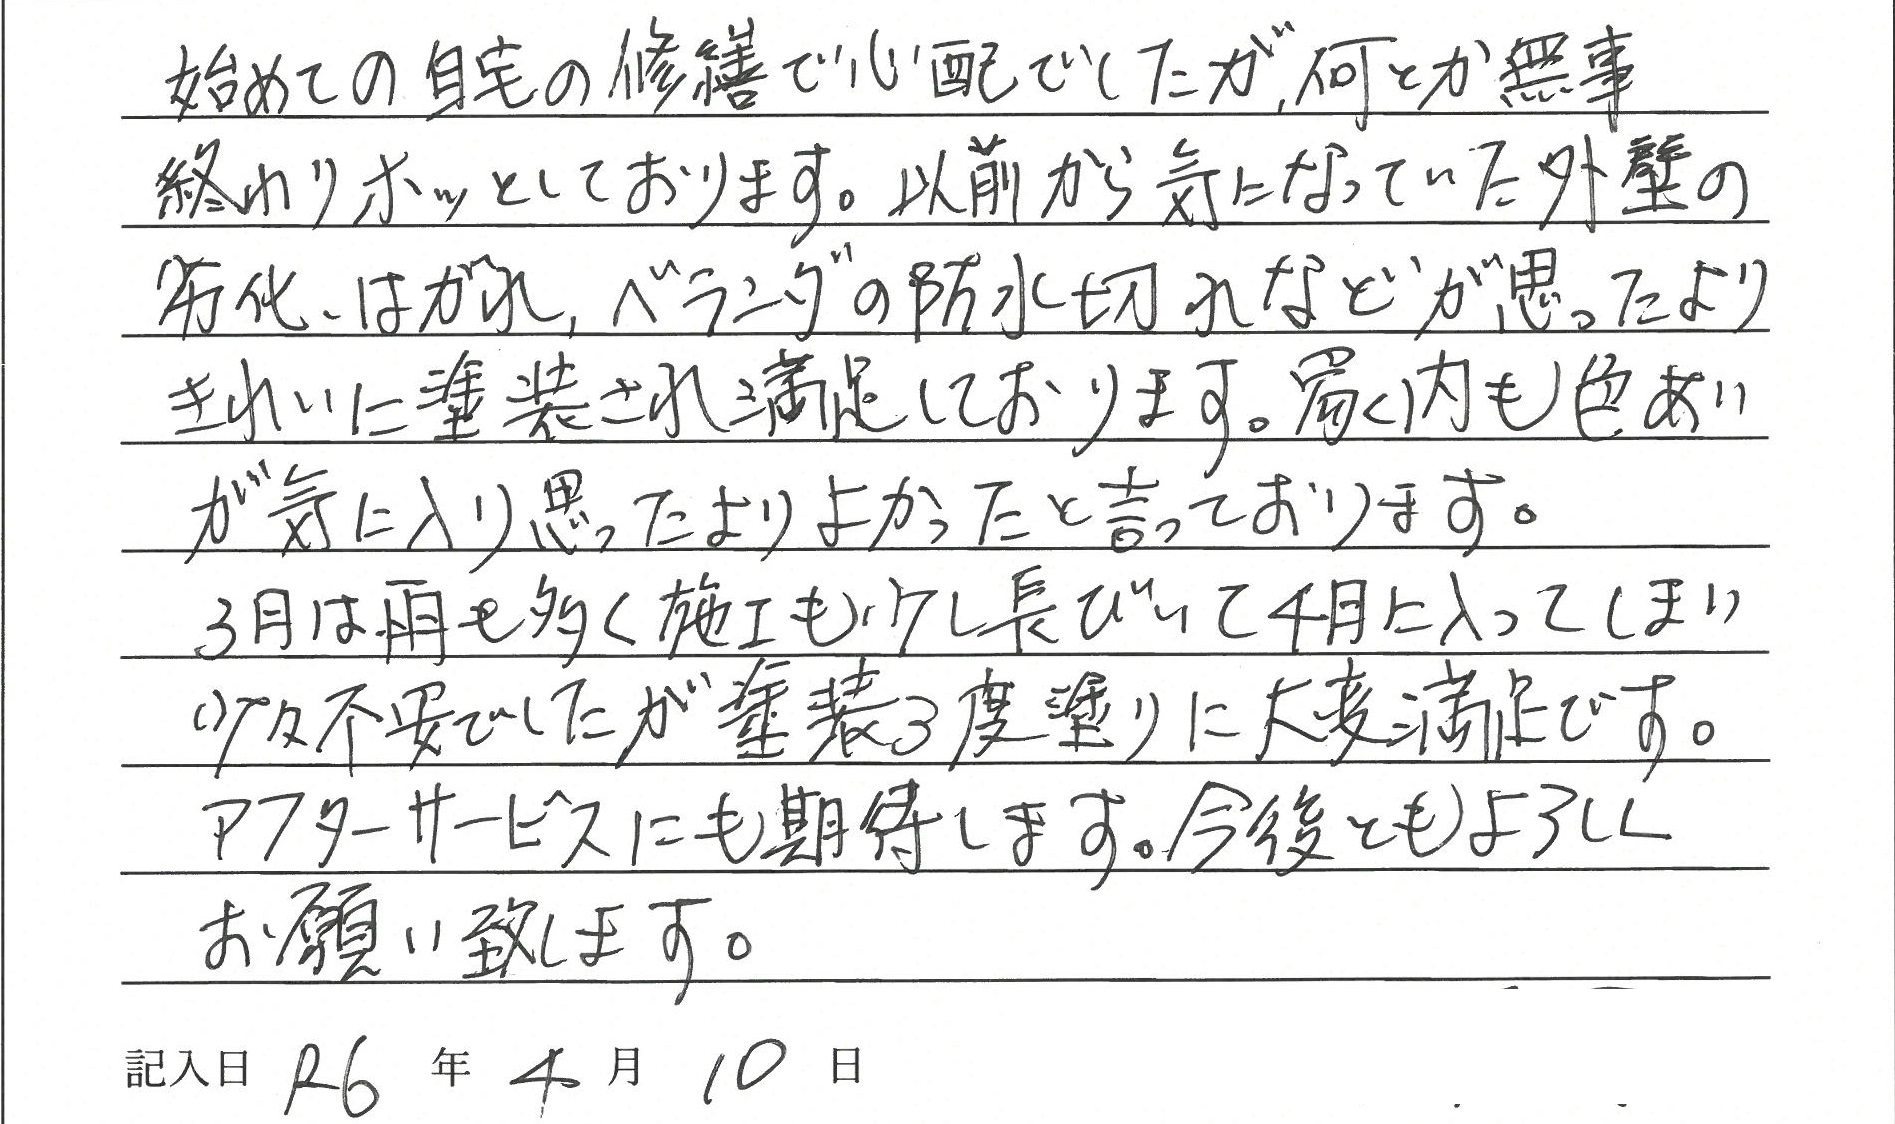 始めての自宅の修繕で心配でしたが、何とか無事
終わりホッとしております。以前から気になっていた外壁の
布化、はがれ、ベランダの防水切れなどが思ったより
きれいに塗装され満足しております。家内も色あい
が気に入り思ったよりよかったと言っております。
3月は雨も多く施工も少し長びいて4月に入ってしまい
少々不安でしたが塗装3度塗りに大変満足です。
アフターサービスにも期待します。今後ともよろしく
お願い致します。
記入日 R6 年 4 月 10 日